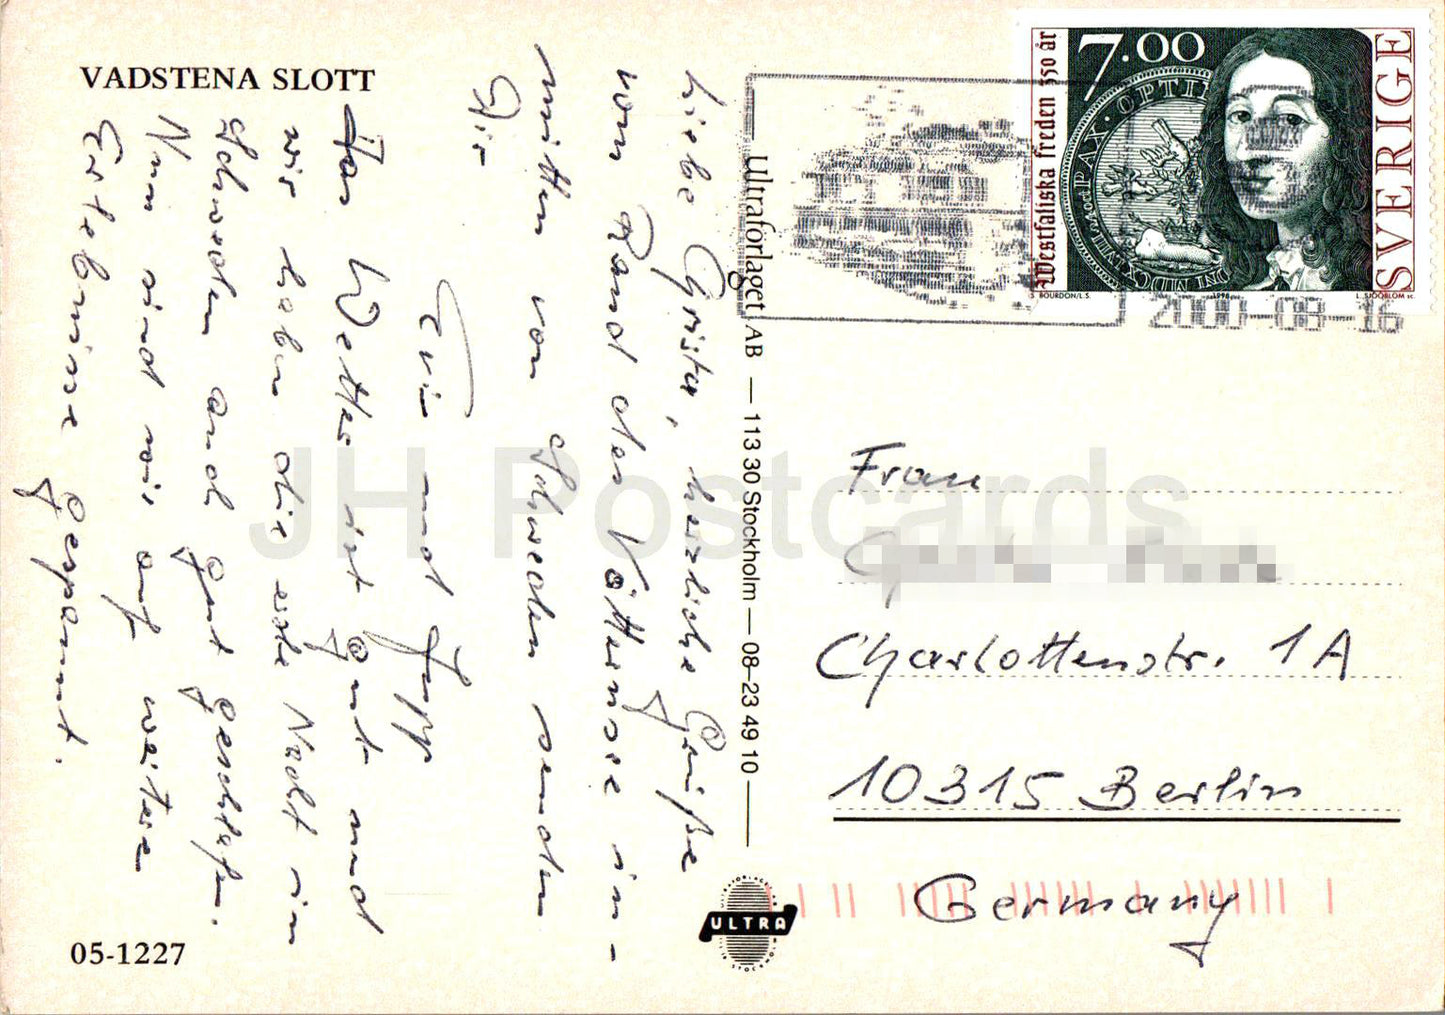 VADSTENA SLOTT
Liebe Christa, herzliche Grüße
vom Rand des Vätternsee in-
mitten von Schweden senden
Dir
Evi und Jupp
Das Wetter ist gut und
wir haben die erste Nacht in
Schweden auch gut geschlafen.
Nun sind wir auf weitere
Erlebnisse gespannt.
05-1227
Ultraförlaget AB — 113 30 Stockholm — 08-23 49 10
ULTRA
7.00
SVERIGE
Westfaliska freden 350 år
PAX·OPTI
S. BOURDON/L.S.
1998
L. SJÖÖBLOM sc.
2000-08-16
Frau
Charlottenstr. 1A
10315 Berlin
Germany
JH Postcards